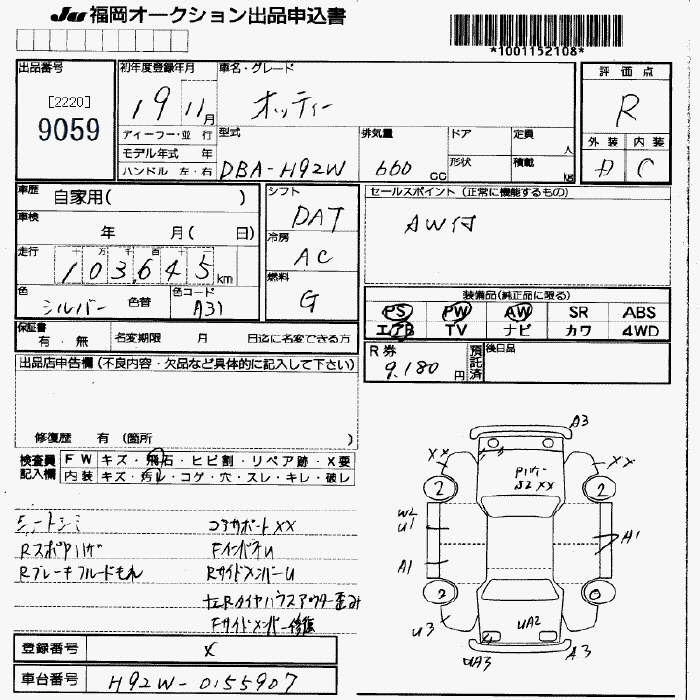 JU 福岡オークション出品申込書
*1001152108*
出品番号
[2220]
9059
初年度登録年月
19 11月
車名・グレード
オッティー
評価点
R
外装 内装
D C
ディーラー・並 行
モデル年式 年
ハンドル 左・右
型式
DBA-H92W
排気量
660 CC
ドア
形状
定員 人
積載 kg
車歴 自家用( )
車検 年 月( 日)
走行 103,645 km
色 シルバー 色替
色コード A31
シフト
DAT
冷房
AC
燃料
G
セールスポイント (正常に機能するもの)
AW付
装備品(純正品に限る)
PS PW AW SR ABS
エアB TV ナビ カワ 4WD
保証書 有・無
名変期限 月 日迄に名変できる方
R券
9,180 円
預託済
後日品
出品店申告欄(不良内容・欠品など具体的に記入して下さい)
修復歴 有 (箇所 )
検査員記入欄
FW キズ・飛石・ヒビ割・リペア跡・X要
内装 キズ・汚レ・コゲ・穴・スレ・キレ・破レ
シートシミ
コアサポートXX
Fインパネu
Rブレーキフルードもれ
RサイドメンバーU
左右Rタイヤハウスアウター歪み
Fサイドメンバー修復
A3
XX
XX
2
2
W2
U1
A1
A1
2
U3
UA2
UA3
A3
登録番号 X
車台番号 H92W-0155907